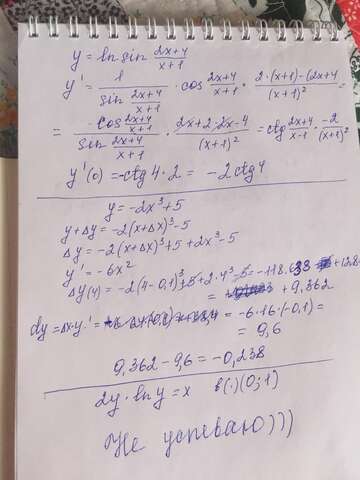 y = ln sin (2x+4)/(x+1)
y' = 1/(sin (2x+4)/(x+1)) · cos (2x+4)/(x+1) · (2·(x+1)-(2x+4))/(x+1)² =
= (cos (2x+4)/(x+1))/(sin (2x+4)/(x+1)) · (2x+2-2x-4)/(x+1)² = ctg (2x+4)/(x-1) · -2/(x+1)²
y'(0) = -ctg 4 · 2 = -2ctg4
y = -2x³+5
y+Δy = -2(x+Δx)³-5
Δy = -2(x+Δx)³+5+2x³-5
y' = -6x²
Δy(4) = -2(4-0,1)³+5+2·4³-5 = -118.638 +128
= +9,362
dy = Δx·y' = -6·16·(-0,1) =
= 9,6
9,362 - 9,6 = -0,238
2y · ln y = x в(·)(0;1)
Не успеваю)))